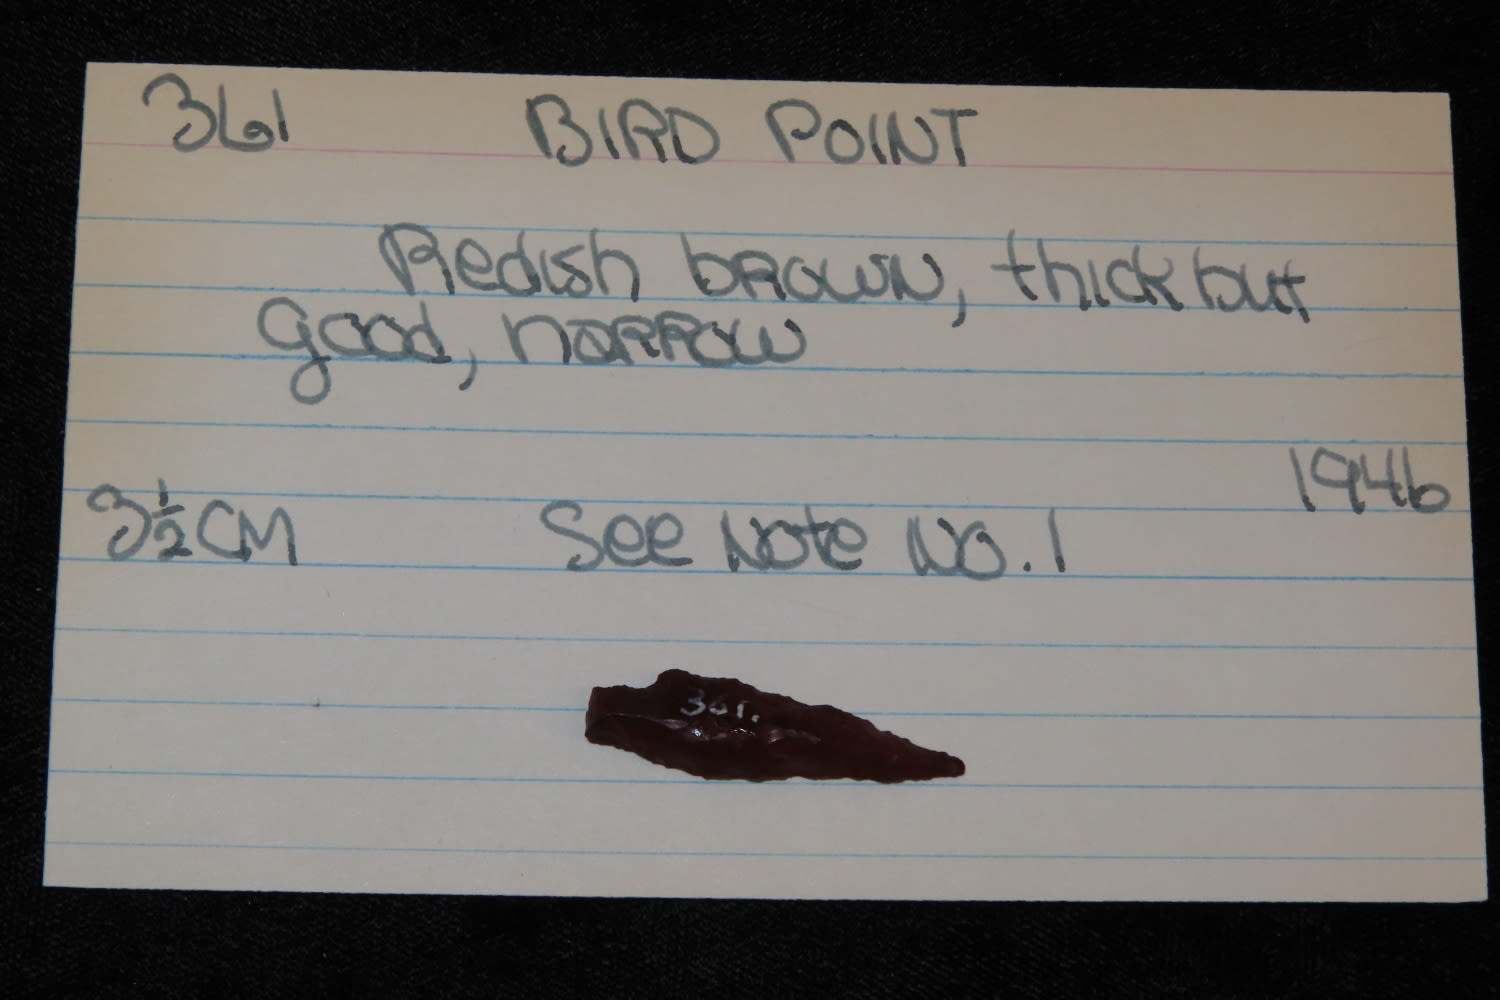 361 BIRD POINT
Redish brown, thick but
good, narrow
1946
3½ CM See Note No. 1